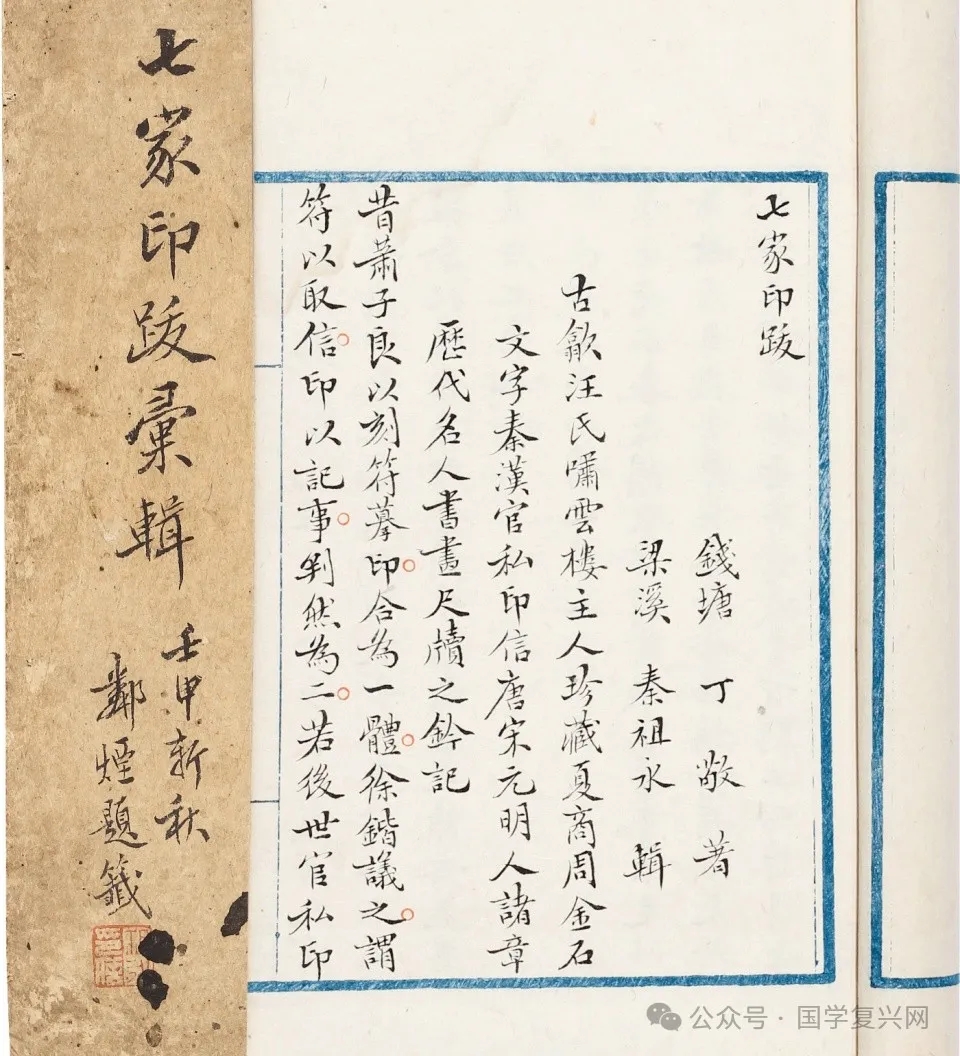 七家印跋彙輯
壬申新秋
鄰煙題籤
七家印跋
錢塘 丁 敬 著
梁溪 秦祖永 輯
古歙汪氏嘯雲樓主人珍藏夏商周金石
文字秦漢官私印信唐宋元明人諸章
歷代名人書畫尺牘之鈐記
昔蕭子良以刻符摹印合為一體徐鍇議之謂
符以取信印以記事判然為二若後世官私印
公众号·国学复兴网